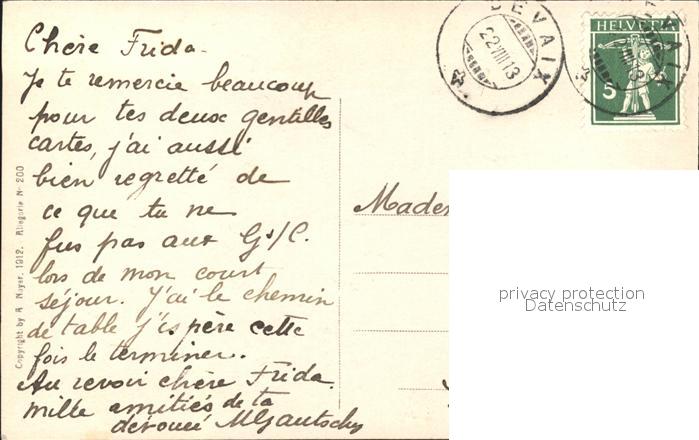 Chère Frida.
Je te remercie beaucoup
pour tes deux gentilles
cartes, j'ai aussi
bien regretté de
ce que tu ne
fus pas aux G/C.
lors de mon court
séjour. J'ai le chemin
de table j'espère cette
fois le terminer.
Au revoir chère Frida
mille amitiés de ta
dévouée MGautschy
Copyright by R. Nayer. 1912. Allegorie No 200
BEVAIX
22.VIII.13
HELVETIA
5
Madem
privacy protection
Datenschutz